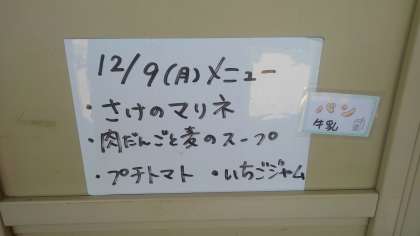 12/9(月)メニュー
・さけのマリネ
・肉だんごと麦のスープ
・プチトマト ・いちごジャム
パン
牛乳